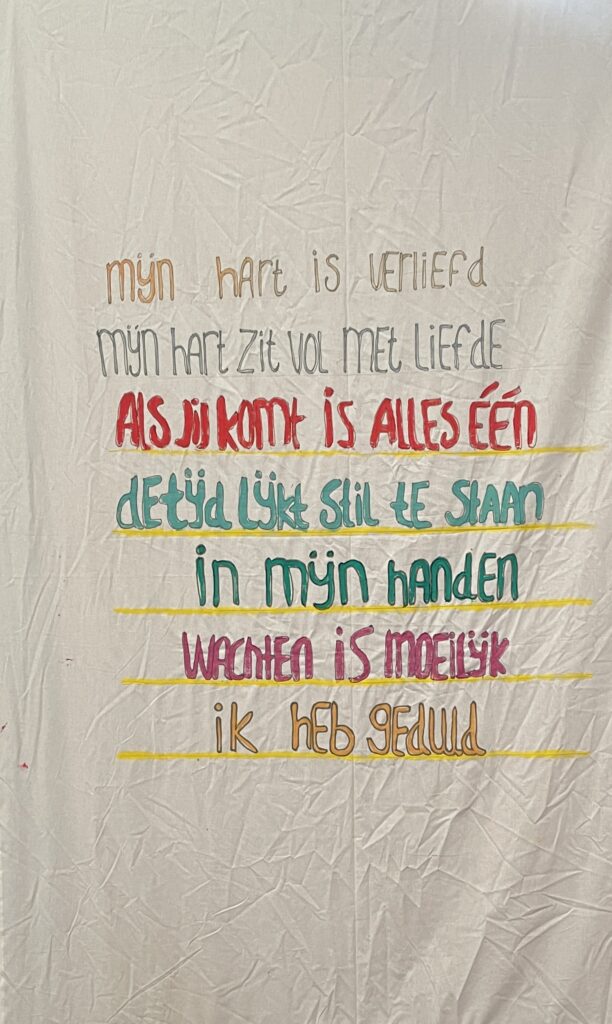 mijn hart is verliefd
mijn hart zit vol met liefde
Als jij komt is ALLES één
de tijd lijkt stil te staan
in mijn handen
wachten is moeilijk
ik heb geduld